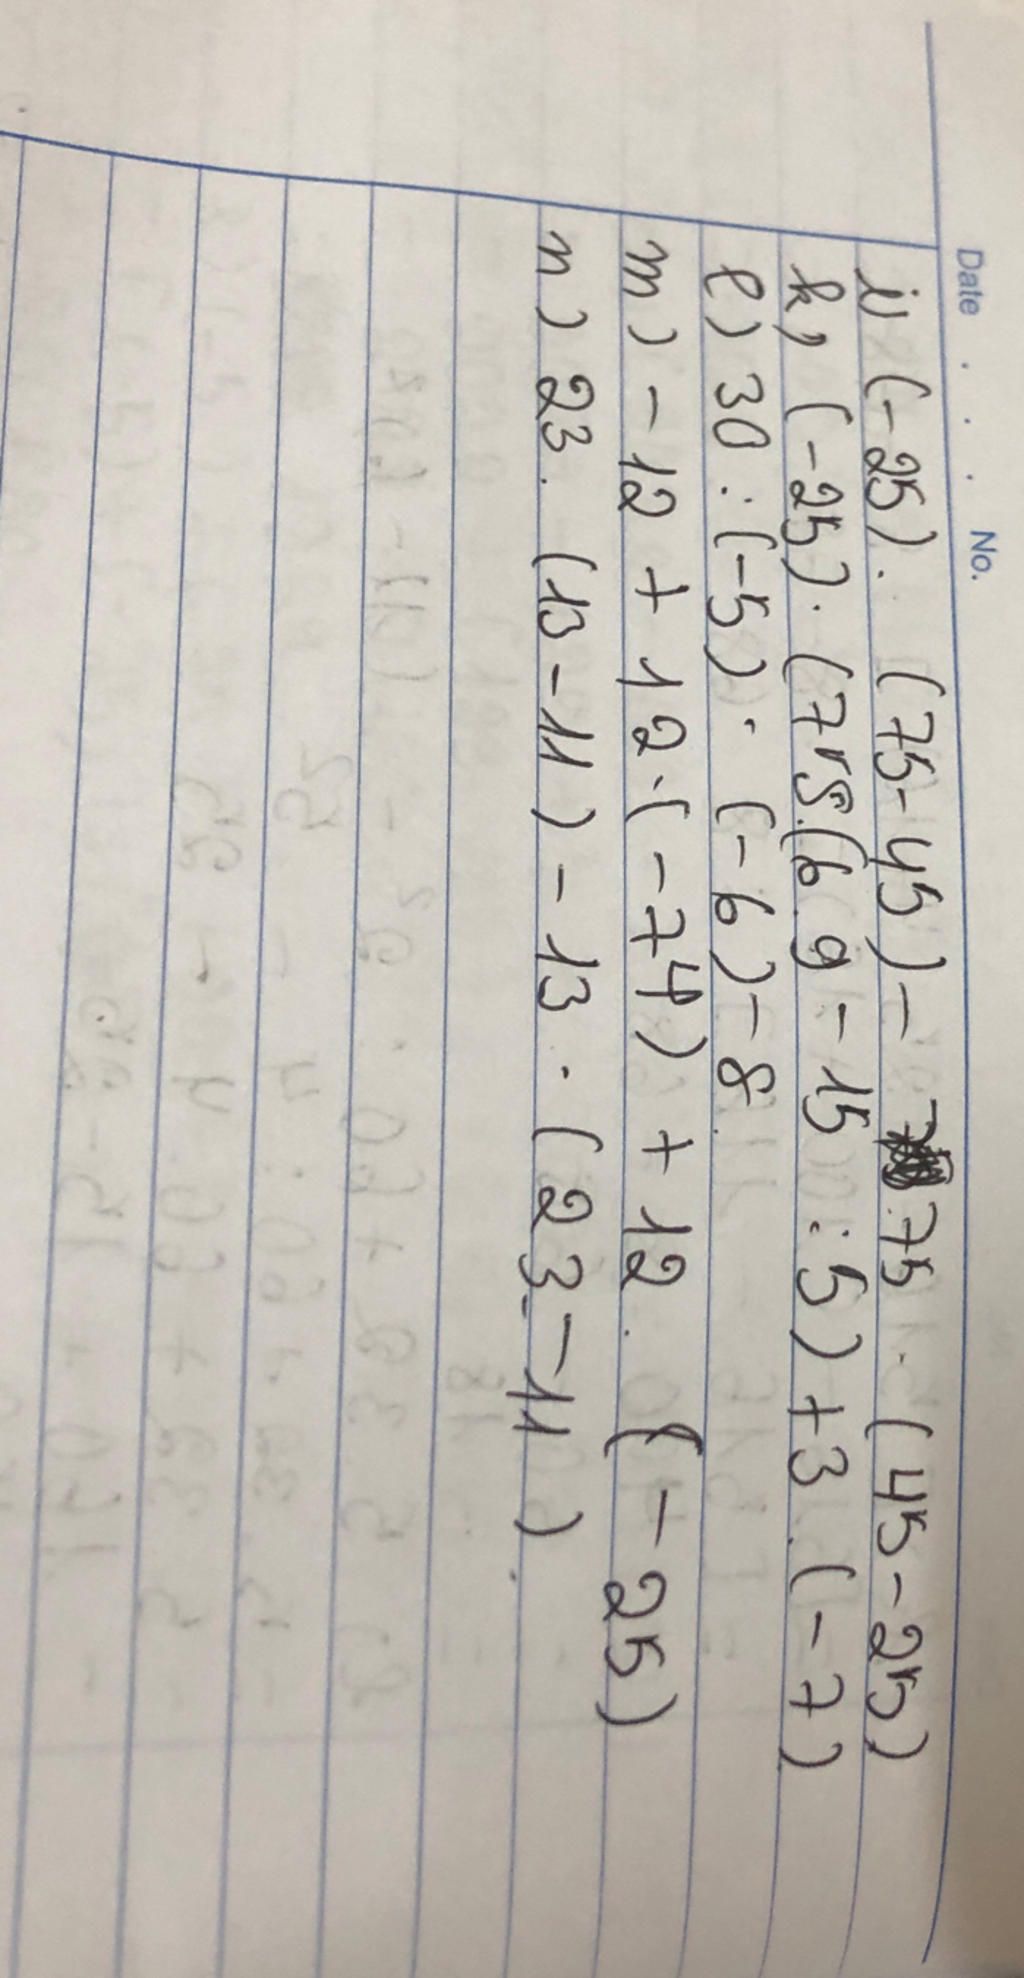 Date . . . No.
i) (-25). (75-45) - 75. (45-25)
k) (-25). (75.(6.9-15:5)+3.(-7)
l) 30:(-5). (-6)-8
m) -12 + 12.(-74) + 12. (-25)
n) 23. (13-11) - 13. (23-11)